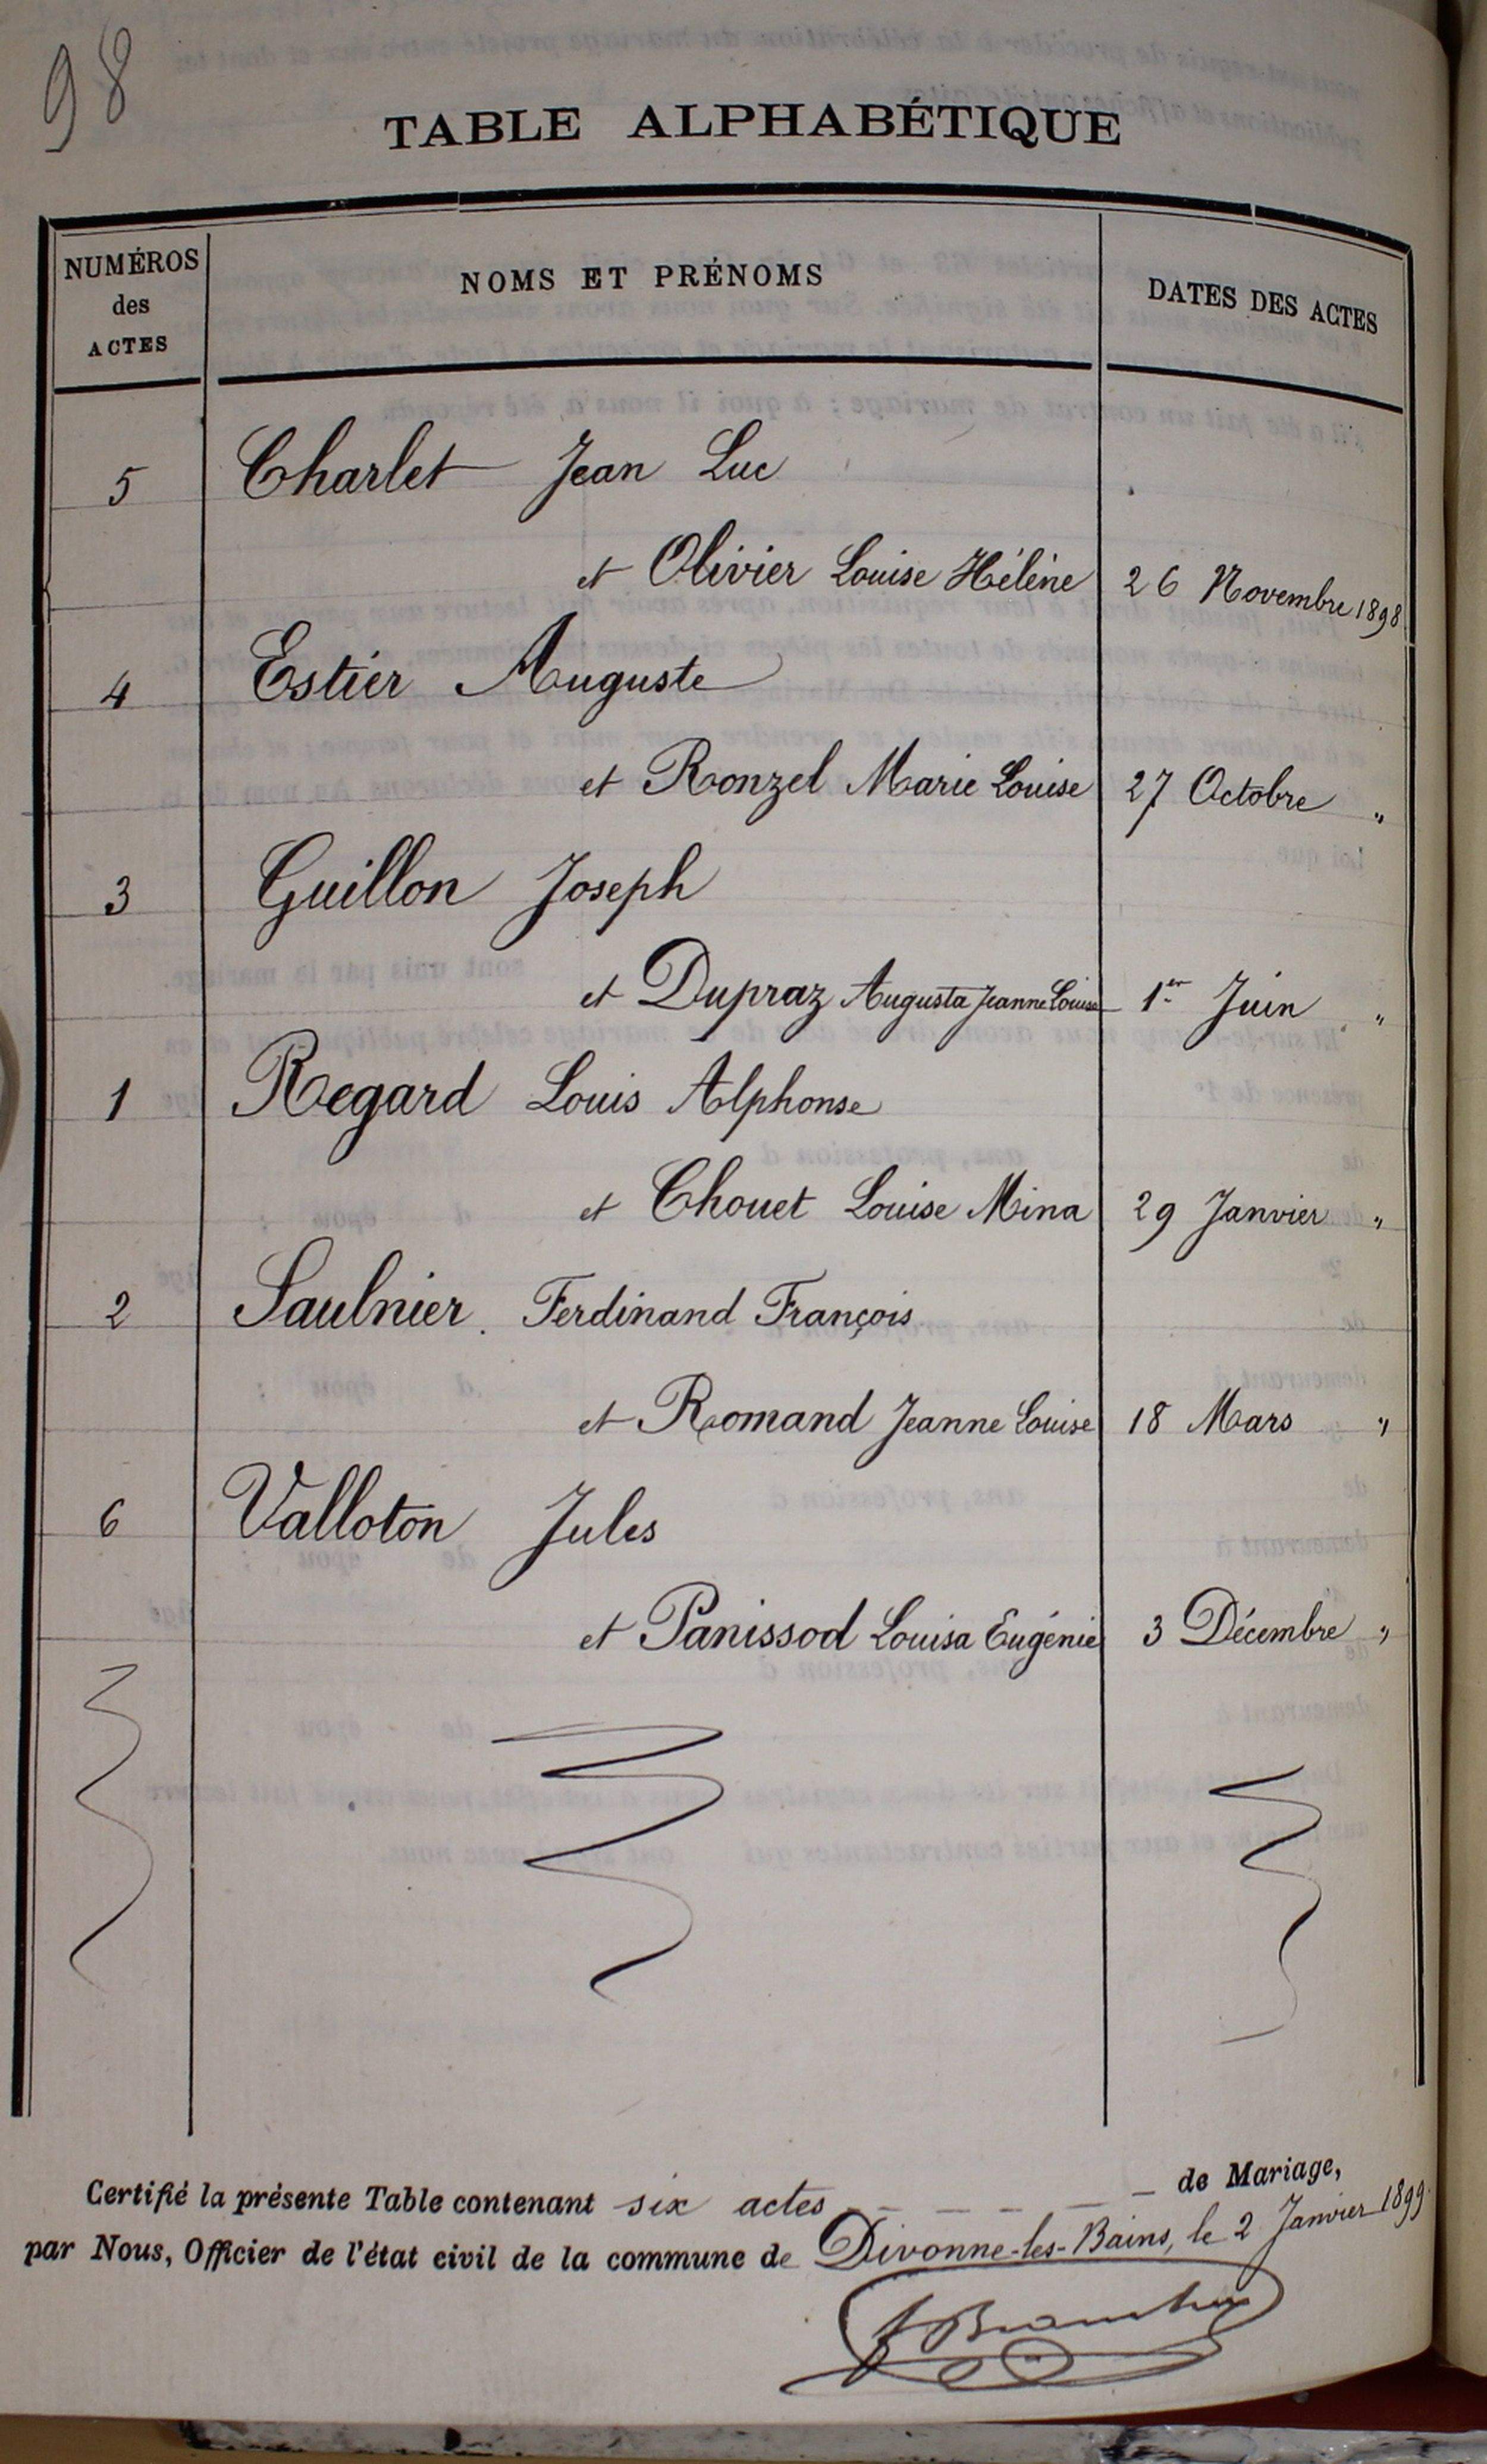 98
TABLE ALPHABÉTIQUE
NUMÉROS des ACTES NOMS ET PRÉNOMS DATES DES ACTES
5 Charlet Jean Luc
et Olivier Louise Hélène 26 Novembre 1898
4 Estier Auguste
et Ronzel Marie Louise 27 Octobre "
3 Guillon Joseph
et Dupraz Augusta Jeanne Louise 1er Juin "
1 Regard Louis Alphonse
et Chouet Louise Mina 29 Janvier "
2 Saulnier. Ferdinand François
et Romand Jeanne Louise 18 Mars "
6 Valloton Jules
et Panissod Louisa Eugénie 3 Décembre "
Certifié la présente Table contenant six actes de Mariage,
par Nous, Officier de l'état civil de la commune de Divonne-les-Bains, le 2 Janvier 1899